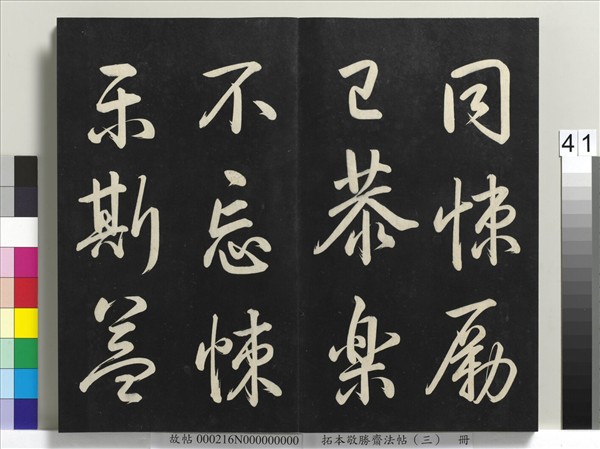 同悚励
已恭楽
不忘悚
乐斯盖
41
故帖 000216N000000000 拓本敬勝齋法帖（三） 冊